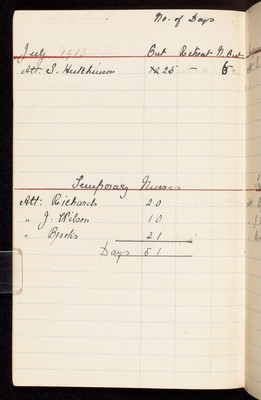 No. of Days
July 1913 Out Retreat N. Out
Att. S. Hutchinson 25 – 5
Temporary Nurses
Att: Richards 20
" J. Wilson 10
" Brooks 21
Days 51